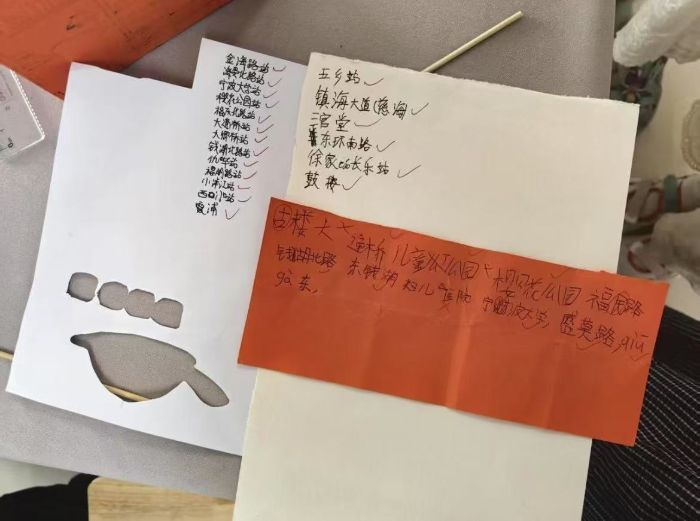 金海路站
海晏北路站
宁波大学站
樱花公园站
福庆北路站
大通桥站
大卿桥站
钱湖北路站
仇毕站
福明路站
小洋江站
西门口站
霞浦
五乡站
镇海大道(慈海
三官堂
东环南路站
徐家 长乐站
鼓楼
古楼 大 通桥 儿童公园 樱花公园 福民路
钱湖北路 东钱湖 妇儿 医院 宁波大学 盛莫路 qiū
gǎi 东.